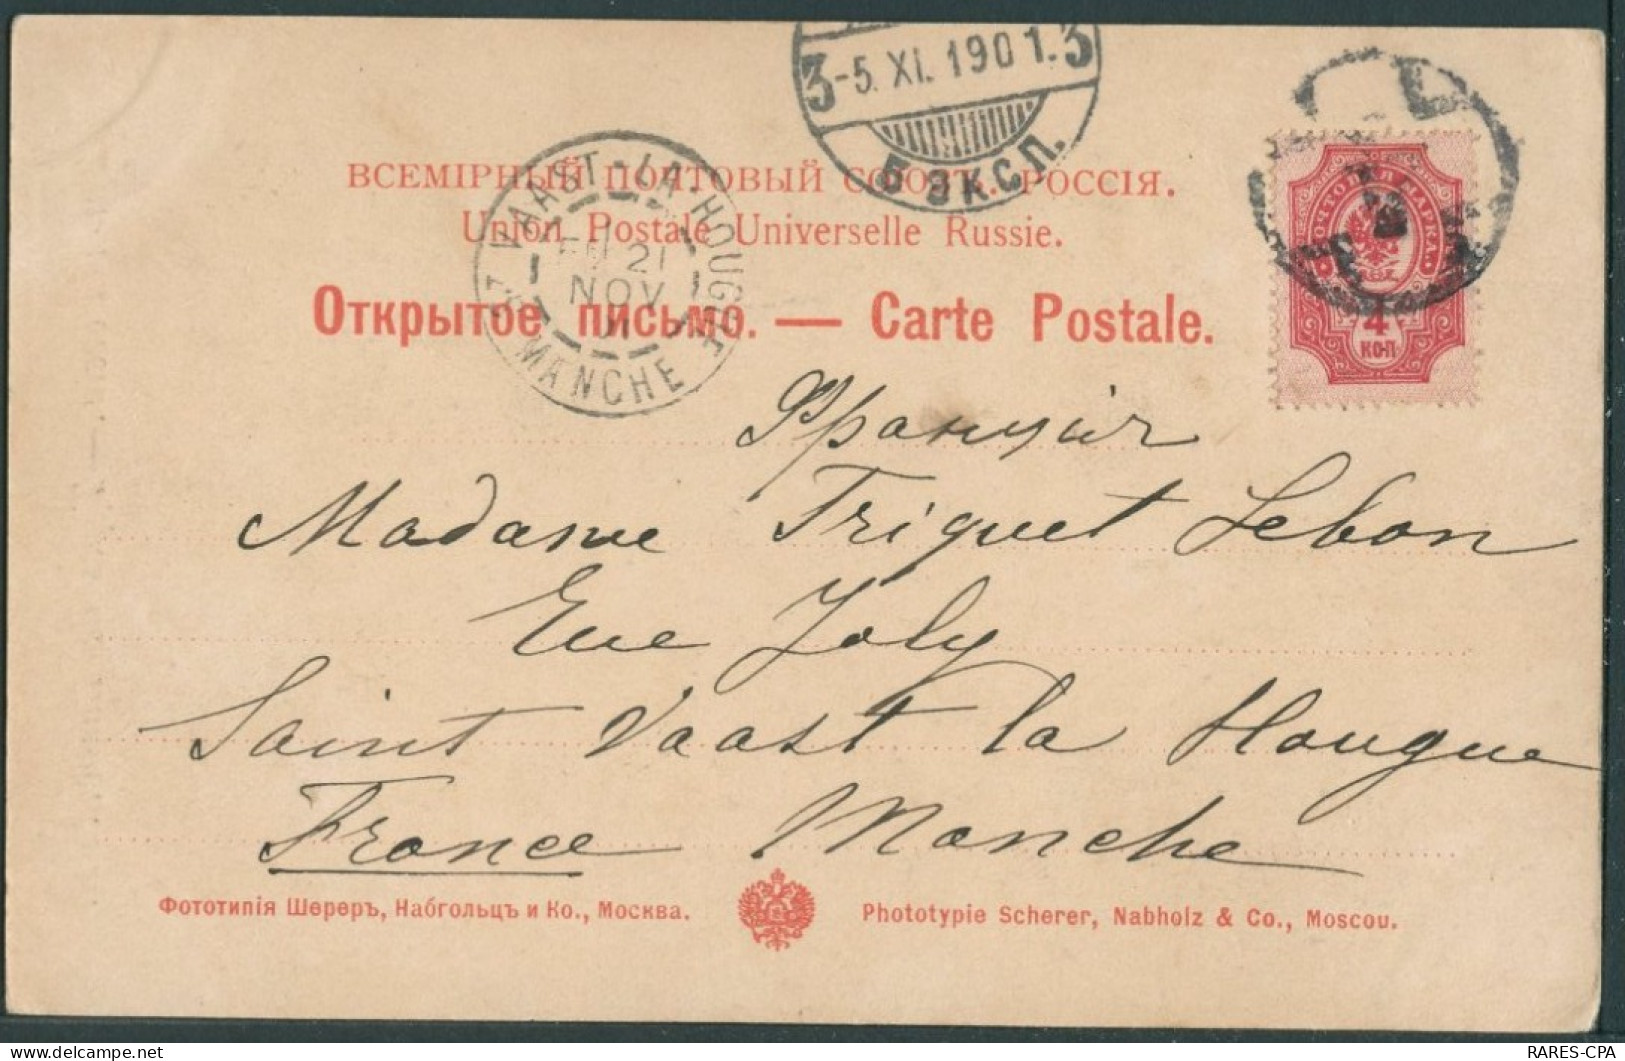 3-5. XI. 1901.3
5 ЭКСП.
ST VAAST-LA-HOUGUE
21
NOV
01
MANCHE
ВСЕМІРНЫЙ ПОЧТОВЫЙ СОЮЗЪ. РОССІЯ.
Union Postale Universelle Russie.
Открытое письмо. — Carte Postale.
ПОЧТОВАЯ МАРКА
4
КОП
Франція
Madame Triquet Lebon
Rue Joly
Saint Vaast la Hougue
France Manche
Фототипія Шереръ, Набгольцъ и Ко., Москва.
Phototypie Scherer, Nabholz & Co., Moscou.
RARES-CPA